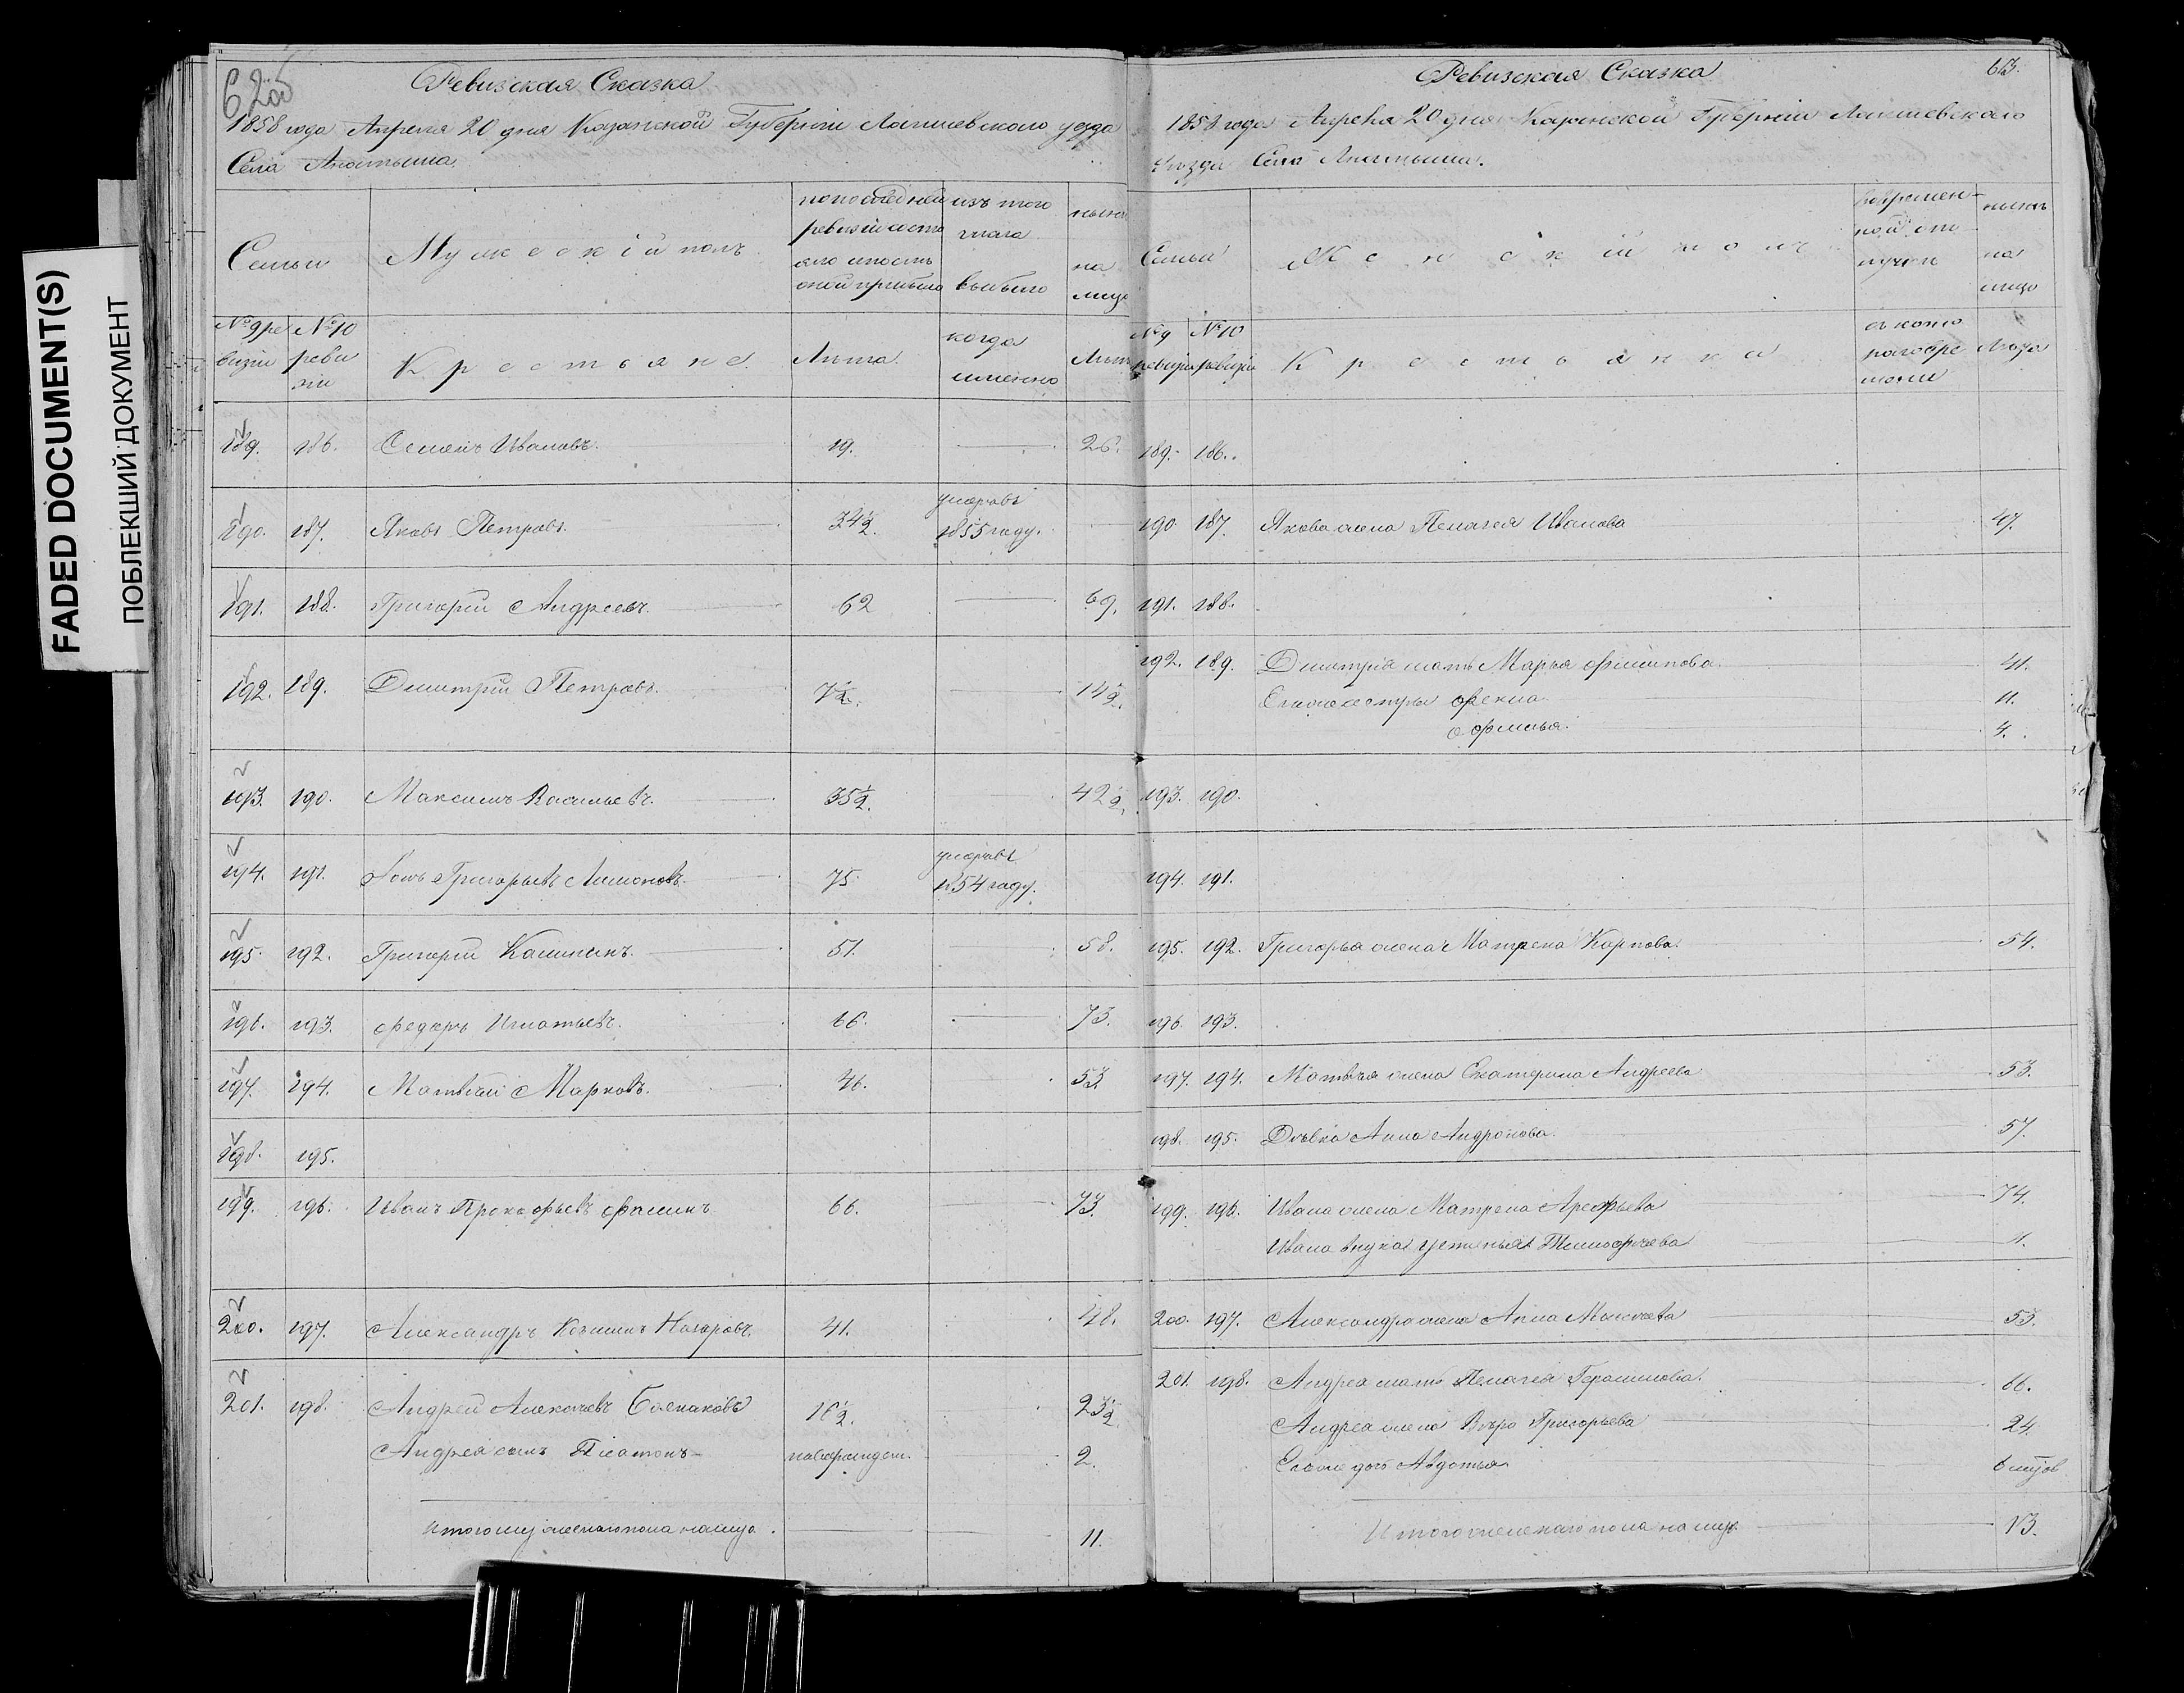 FADED DOCUMENT(S)
ПОБЛЕКШИЙ ДОКУМЕНТ
62 об
Ревизская Сказка
1858 года Апреля 20 дня Казанской Губерніи Лаишевскаго уезда
Села
Семьи
Мужескій полъ
по последней ревизіи состояло и после оной прибыло
изъ того числа выбыло
ныне на лицо
№ 9 ревизіи
№ 10 ревизіи
Крестьяне
Лета
когда именно
Лета
189. 186. Семенъ Ивановъ. 19. 26.
190. 187. Яковъ Петровъ. 34½. умеръ въ 1855 году.
191. 188. Григорій Андреевъ. 62 69.
192. 189. Дмитрій Петровъ. 7½. 14½.
193. 190. Максимъ Васильевъ. 35½. 42½.
194. 191. Григорьевъ 75. умеръ въ 1854 году.
195. 192. Григорій Калининъ. 51. 58.
196. 193. Федоръ Игнатьевъ. 66. 73.
197. 194. Матвей Марковъ. 46. 53.
198. 195.
199. 196. Иванъ Прокофьевъ Фоминъ 66. 73.
200. 197. Александръ Козминъ Назаровъ. 41. 48.
201. 198. Андрей Алексеевъ 16½. 23½.
Андрея сынъ Платонъ новорожден. 2.
Итого мужескаго пола на лицо. 11.
Ревизская Сказка
63.
1858 года Апреля 20 дня Казанской Губерніи Лаишевскаго
Уезда Села
Семьи
Женскій полъ
во временной отлучке
ныне на лицо
№ 9 ревизіи
№ 10 ревизіи
Крестьянки
съ кого времени
Лета
189. 186.
190 187. Якова жена Пелагея Иванова 47.
191. 188.
192. 189. Дмитрія мать Марья Филипова. 41.
Его же сестры Фекла. 11.
Софинья. 4.
193. 190.
194. 191.
195. 192. Григорья жена Матрена Карпова. 54.
196. 193.
197. 194. Матвея жена Екатерина Андреева 53.
198. 195. Девка Анна Андронова. 57.
199. 196. Ивана жена Матрена Арефьева 74.
Ивана внука Устинья Тимофеева 11.
200. 197. Александра жена Анна Моисеева 53.
201. 198. Андрея мать Пелагея Герасимова. 66.
Андрея жена Вера Григорьева 24.
Его же дочь Авдотья. 6 месяцов
Итого женскаго пола на лицо 13.